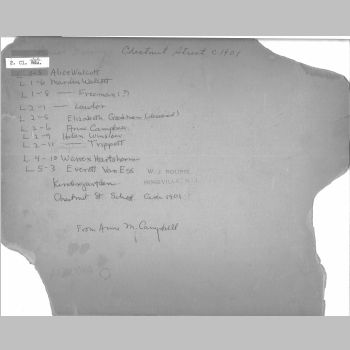 Chestnut Street C 1901
2. Cl.
L 1-5 Alice Walcott
L 1-6 Marden Walcott
L 1-8 — Freeman (?)
L 2-1 — Lawlor
L 2-5 Elizabeth
L 2-6 Anne Campbell
L 2-9 Helen Winslow
L 2-11 — Trippett
L 4-10 Warren Hartshorn
L 5-3 Everett Van Ess
W. J. BOURNE
Kindergarten
Chestnut St School Circa 1901
From Anne M. Campbell